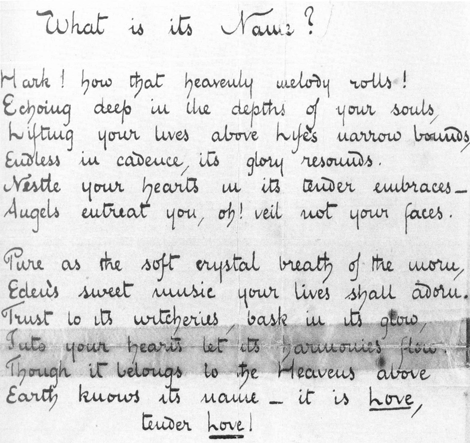 What is its Name?
Hark! how that heavenly melody rolls!
Echoing deep in the depths of your souls,
Lifting your lives above Life's narrow bounds,
Endless in cadence, its glory resounds.
Nestle your hearts in its tender embraces—
Angels entreat you, oh! veil not your faces.
Pure as the soft crystal breath of the morn,
Eden's sweet music your lives shall adorn.
Trust to its witcheries, bask in its glow,
Into your hearts let its harmonies flow.
Though it belongs to the Heavens above
Earth knows its name — it is Love,
tender Love!